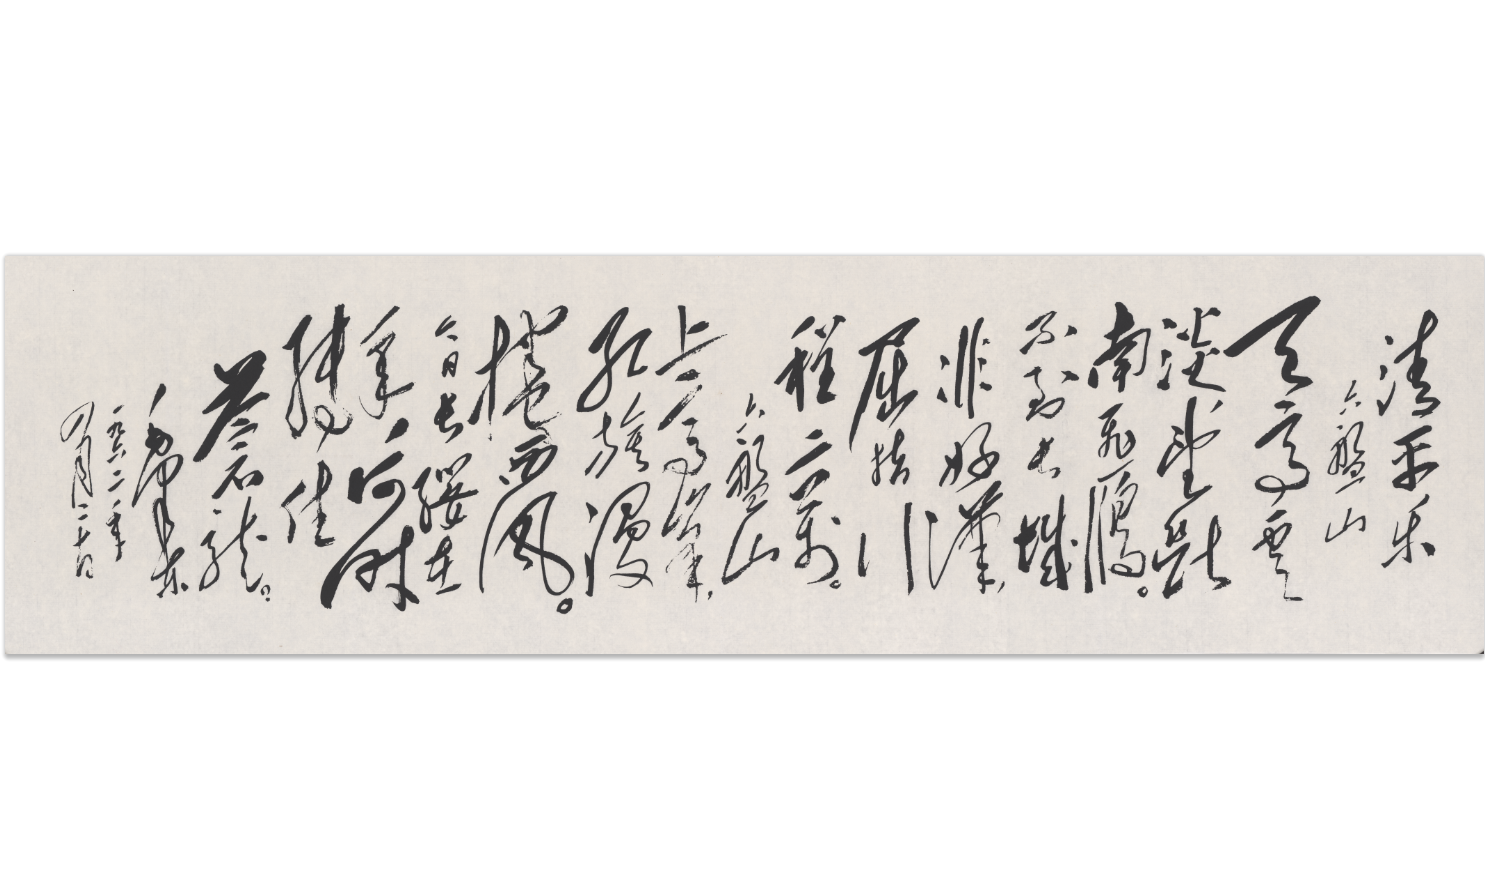 清平乐
六盤山
天高雲
淡望断
南飛雁。
不到长城
非好漢,
屈指行
程二萬。
六盤山
上高峰,
红旗漫
捲西風。
今日长缨在
手,何时
缚住
蒼龍。
毛泽东
一九六二年
四月二十日